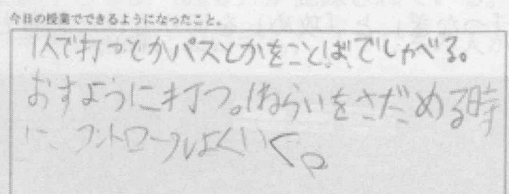 今日の授業でできるようになったこと。
1人で打つとかパスとかをことばでしゃべる。
おすように打つ。ねらいをさだめる時
に、コントロールよくいく。